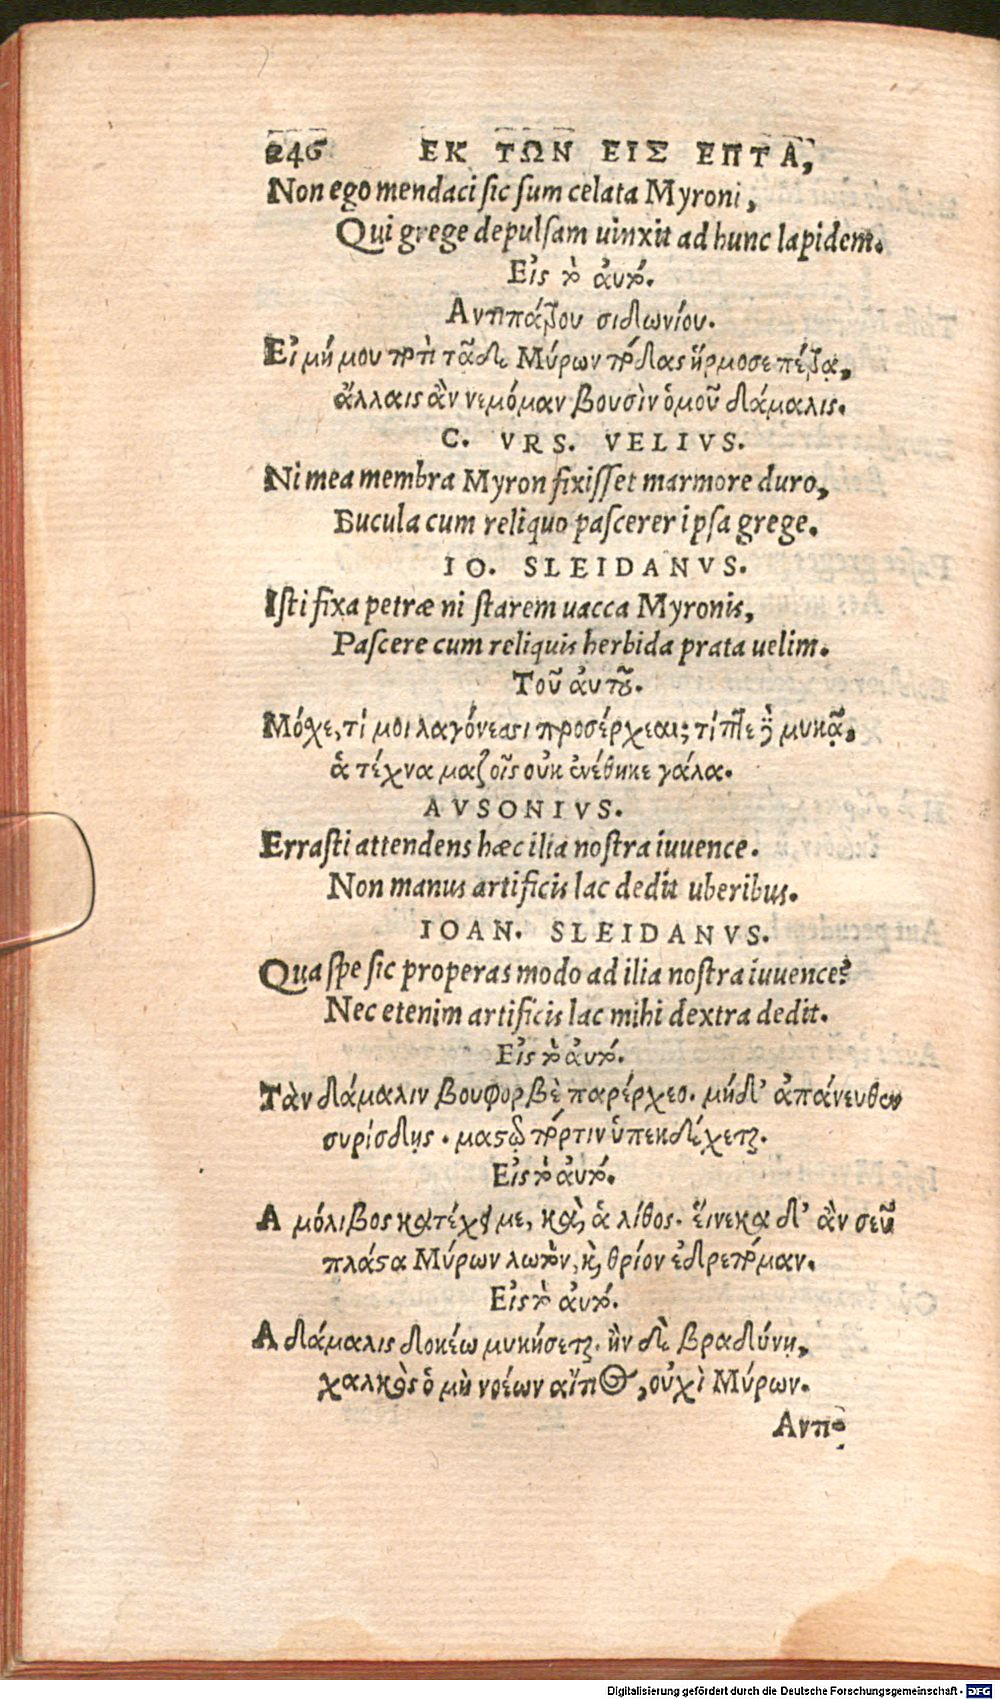 246 ΕΚ ΤΩΝ ΕΙΣ ΕΠΤΑ,
Non ego mendaci sic sum celata Myroni,
Qui grege depulsam uinxit ad hunc lapidem.
Εἰς τὸ αὐτό.
Αντιπάτρου σιδωνίου.
Εἰ μή μου ποτὶ τᾷδε Μύρων πόδας ἥρμοσε πέτρᾳ,
ἄλλαις ἂν νεμόμαν βουσὶν ὁμοῦ δάμαλις.
C. VRS. VELIVS.
Ni mea membra Myron fixisset marmore duro,
Bucula cum reliquo pascerer ipsa grege.
IO. SLEIDANVS.
Isti fixa petræ ni starem uacca Myronis,
Pascere cum reliquis herbida prata uelim.
Τοῦ ἀυτοῦ.
Μόχε, τί μοι λαγόνεσσι προσέρχεαι; τίπτε δὲ μυκᾷ,
ἁ τέχνα μαζοῖς οὐκ ἐνέθηκε γάλα.
AVSONIVS.
Errasti attendens hæc ilia nostra iuuence.
Non manus artificis lac dedit uberibus.
IOAN. SLEIDANVS.
Qua spe sic properas modo ad ilia nostra iuuence?
Nec etenim artificis lac mihi dextra dedit.
Εἰς τὸ ἀυτό.
Τὰν δάμαλιν βουφορβὲ παρέρχεο. μήδ' ἀπάνευθεν
συρίσδῃς. μαστῷ πόρτιν ὑπεκδέχεται.
Εἰς τὸ ἀυτό.
Α μόλιβος κατέχει με, καὶ ἁ λίθος. εἵνεκα δ' ἂν σεῦ
πλάστα Μύρων λωτὸν, καὶ θρίον ἐδρεπόμαν.
Εἰς τὸ ἀυτό.
Α δάμαλις δοκέω μυκήσεται. ἢν δὲ βραδύνῃ,
χαλκὸς ὁ μὴ νοέων αἴτιος, οὐχὶ Μύρων.
Αντι-
Digitalisierung gefördert durch die Deutsche Forschungsgemeinschaft - DFG